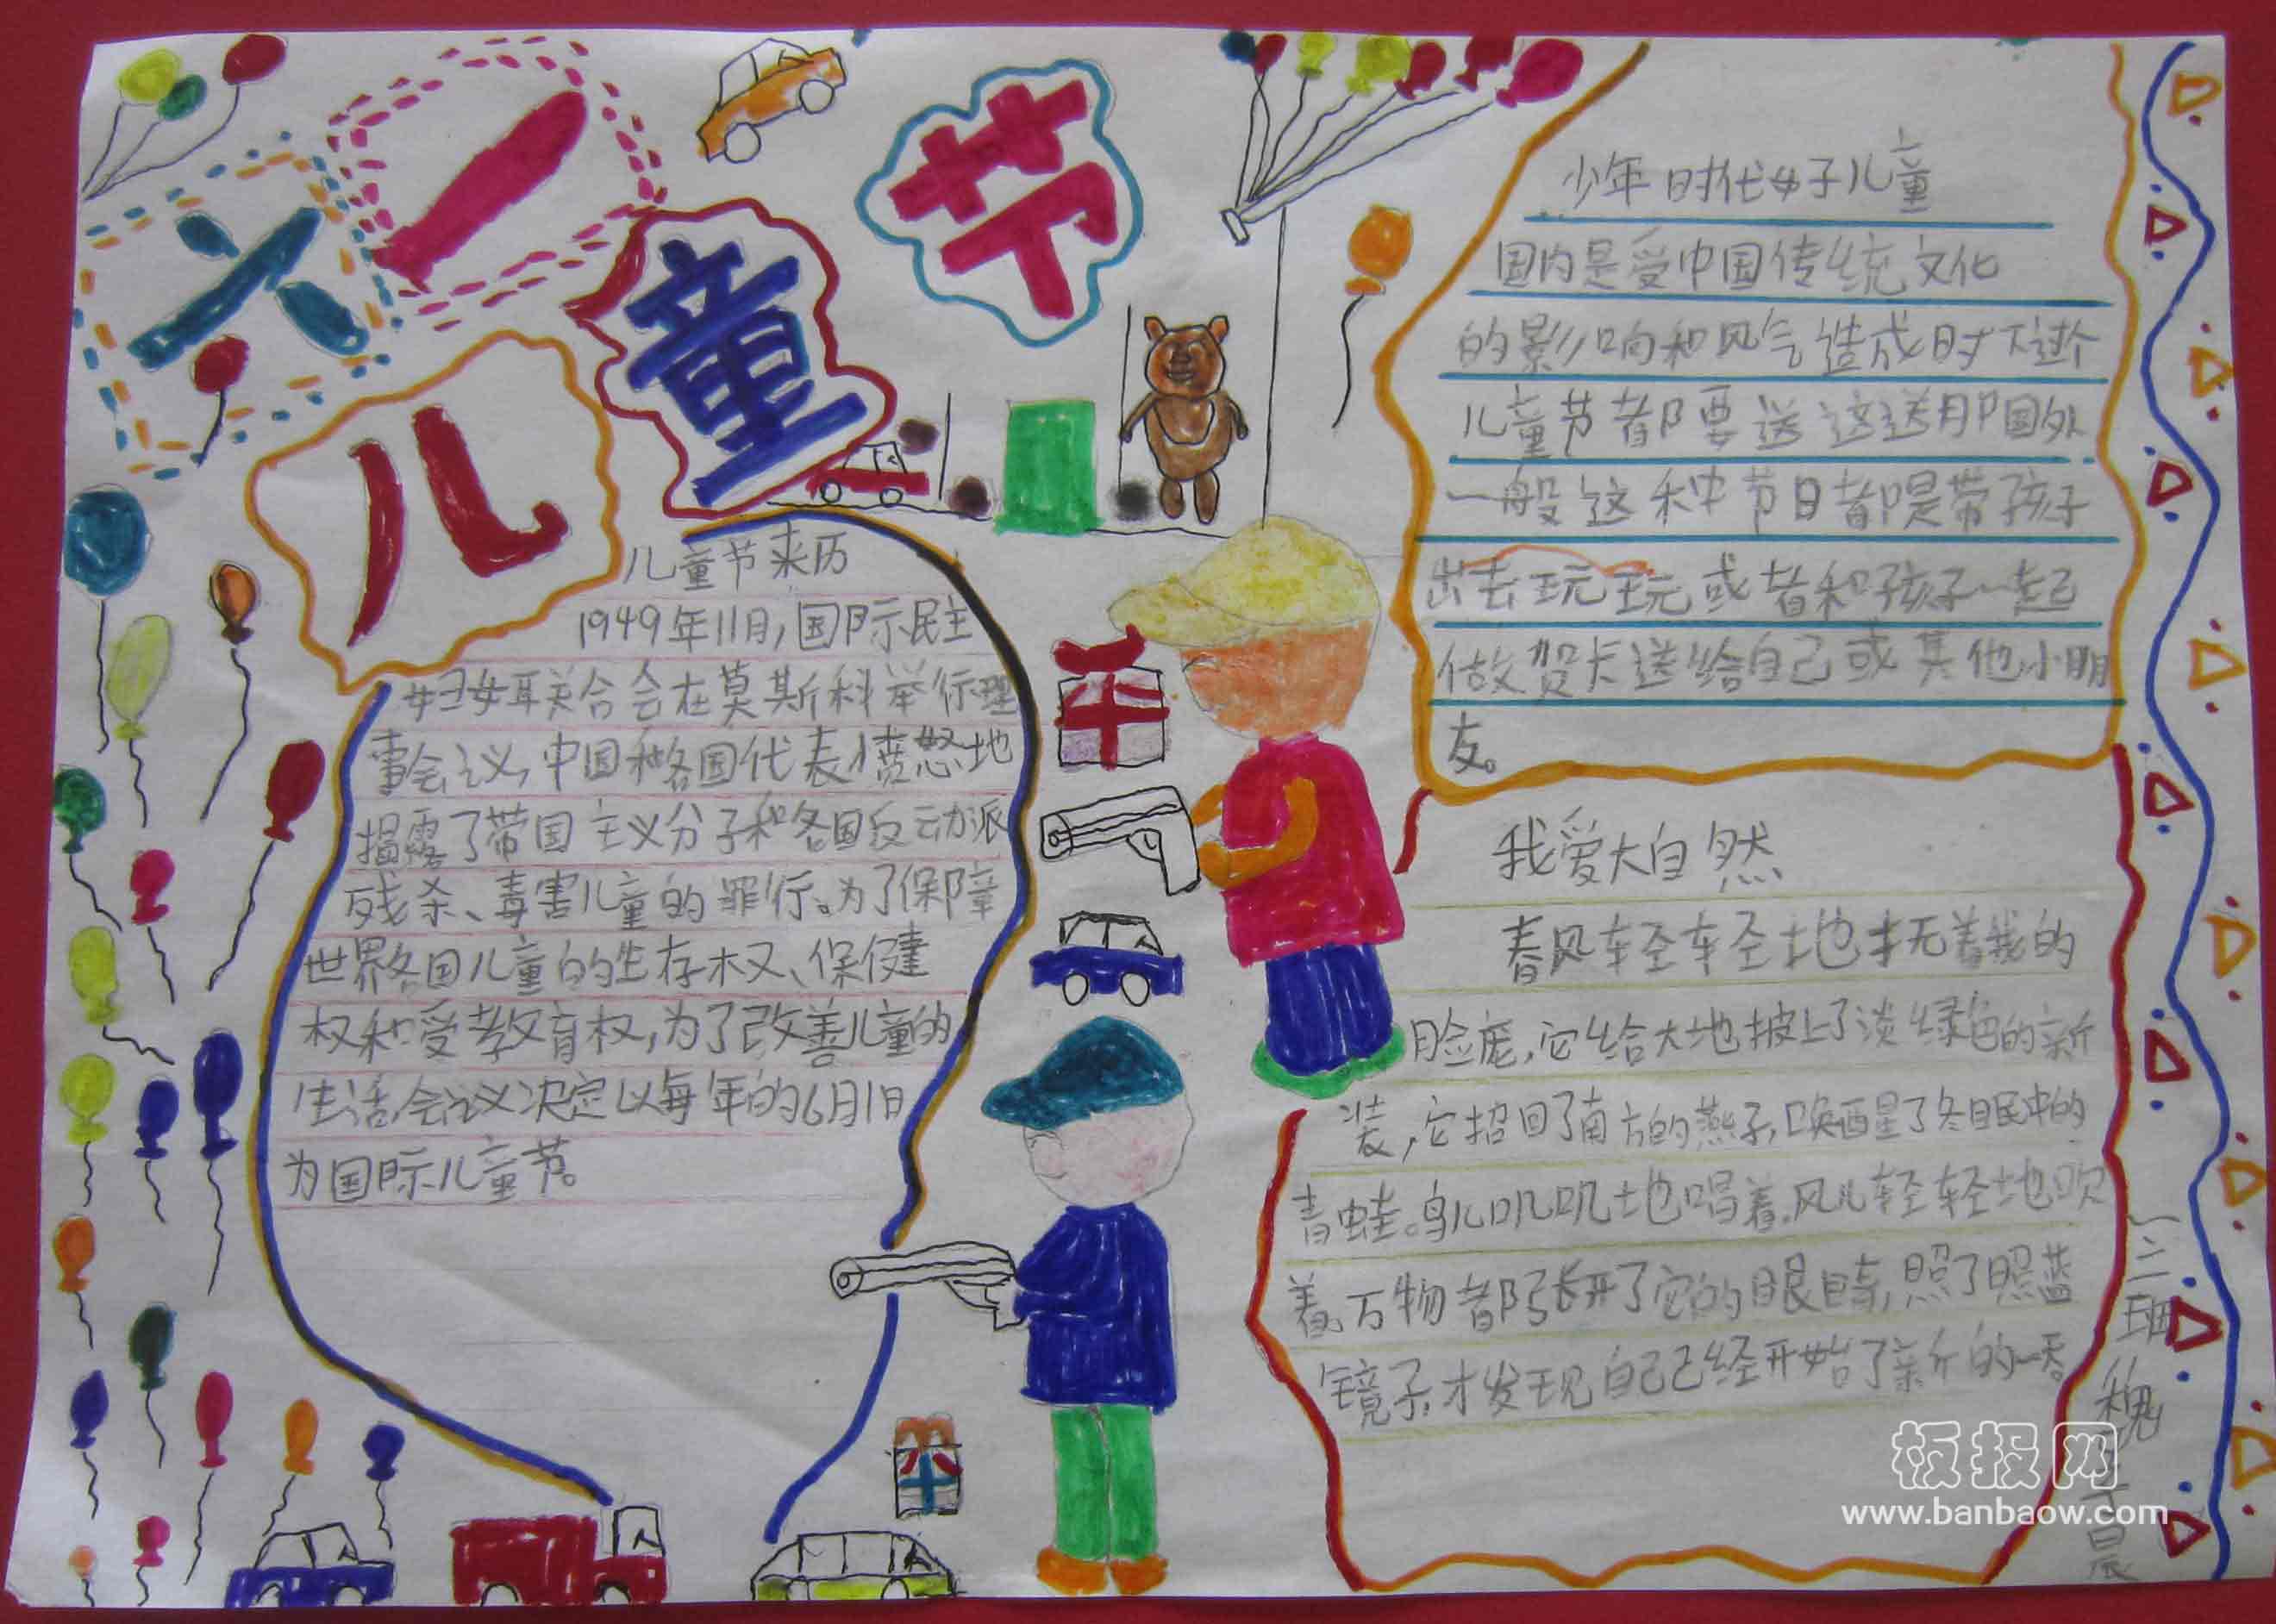 六一儿童节
儿童节来历
1949年11月,国际民主
妇女联合会在莫斯科举行理
事会议,中国和各国代表愤怒地
揭露了帝国主义分子和各国反动派
残杀、毒害儿童的罪行。为了保障
世界各国儿童的生存权、保健
权和受教育权,为了改善儿童的
生活,会议决定以每年的6月1日
为国际儿童节。
少年时代好儿童
国内是受中国传统文化
的影响和风气造成时下逢个
儿童节都要送这送那国外
一般这种节日都是带孩子
出去玩玩或者和孩子一起
做贺卡送给自己或其他小朋
友。
我爱大自然
春风轻轻地抚着我的
脸庞,它给大地披上了淡绿色的新
装,它招回了南方的燕子,唤醒了冬眠中的
青蛙。鸟儿叽叽地唱着,风儿轻轻地吹
着,万物都张开了它的眼睛,照了照蓝
镜子,才发现自己已经开始了新的一季
一二班
魏
晨
板报网
www.banbaow.com